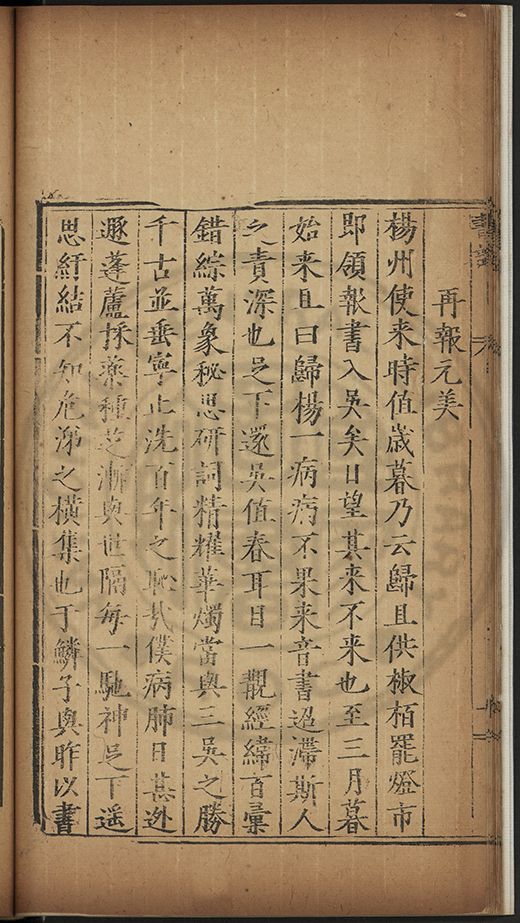 再報元美
楊州使来時值歲暮乃云歸且供椒栢罷燈市
即領報書入吳矣日望其来不来也至三月暮
始来且曰歸楊一病病不果来音書迢滯斯人
之責深也足下還吳值春耳目一觀經緯百彙
錯綜萬象秘思研詞精耀華燭當與三吳之勝
千古並垂寧止洗百年之恥哉僕病肺日甚迯
遯蓬蘆採藥種芝漸與世隔每一馳神足下遥
思紆結不知危涕之橫集也于鱗子與昨以書